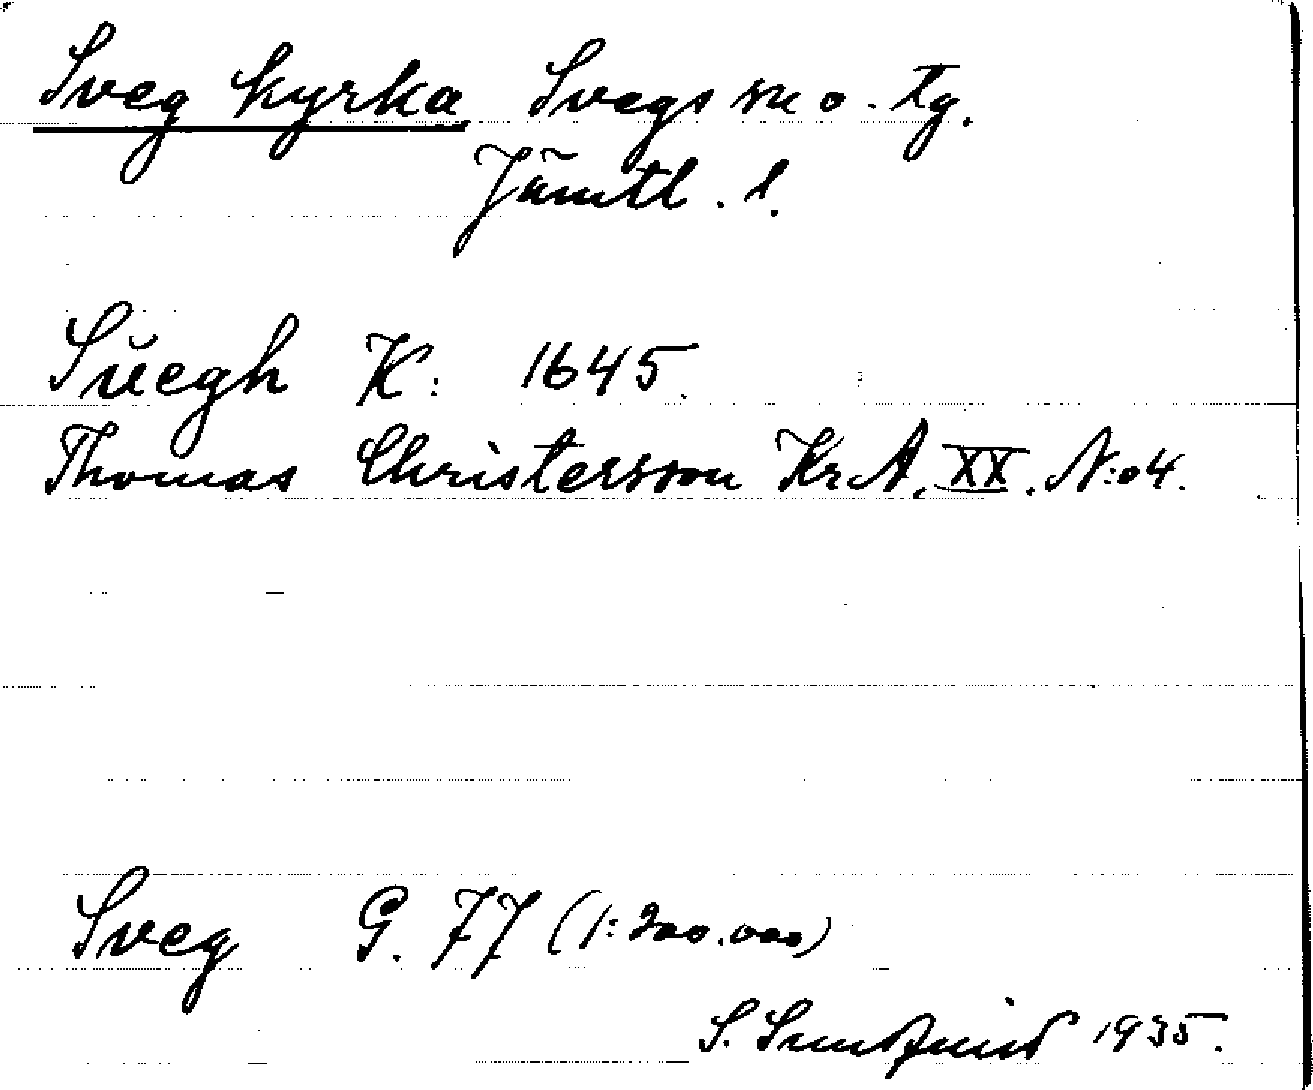 Sveg kyrka Svegs sn o. tg.
Jämtl. l.
Sŭegh K: 1645.
Thomas Christersson KrA. XX. N:o 4.
Sveg G. 77 (1:200.000)
S. Sundqvist 1935.